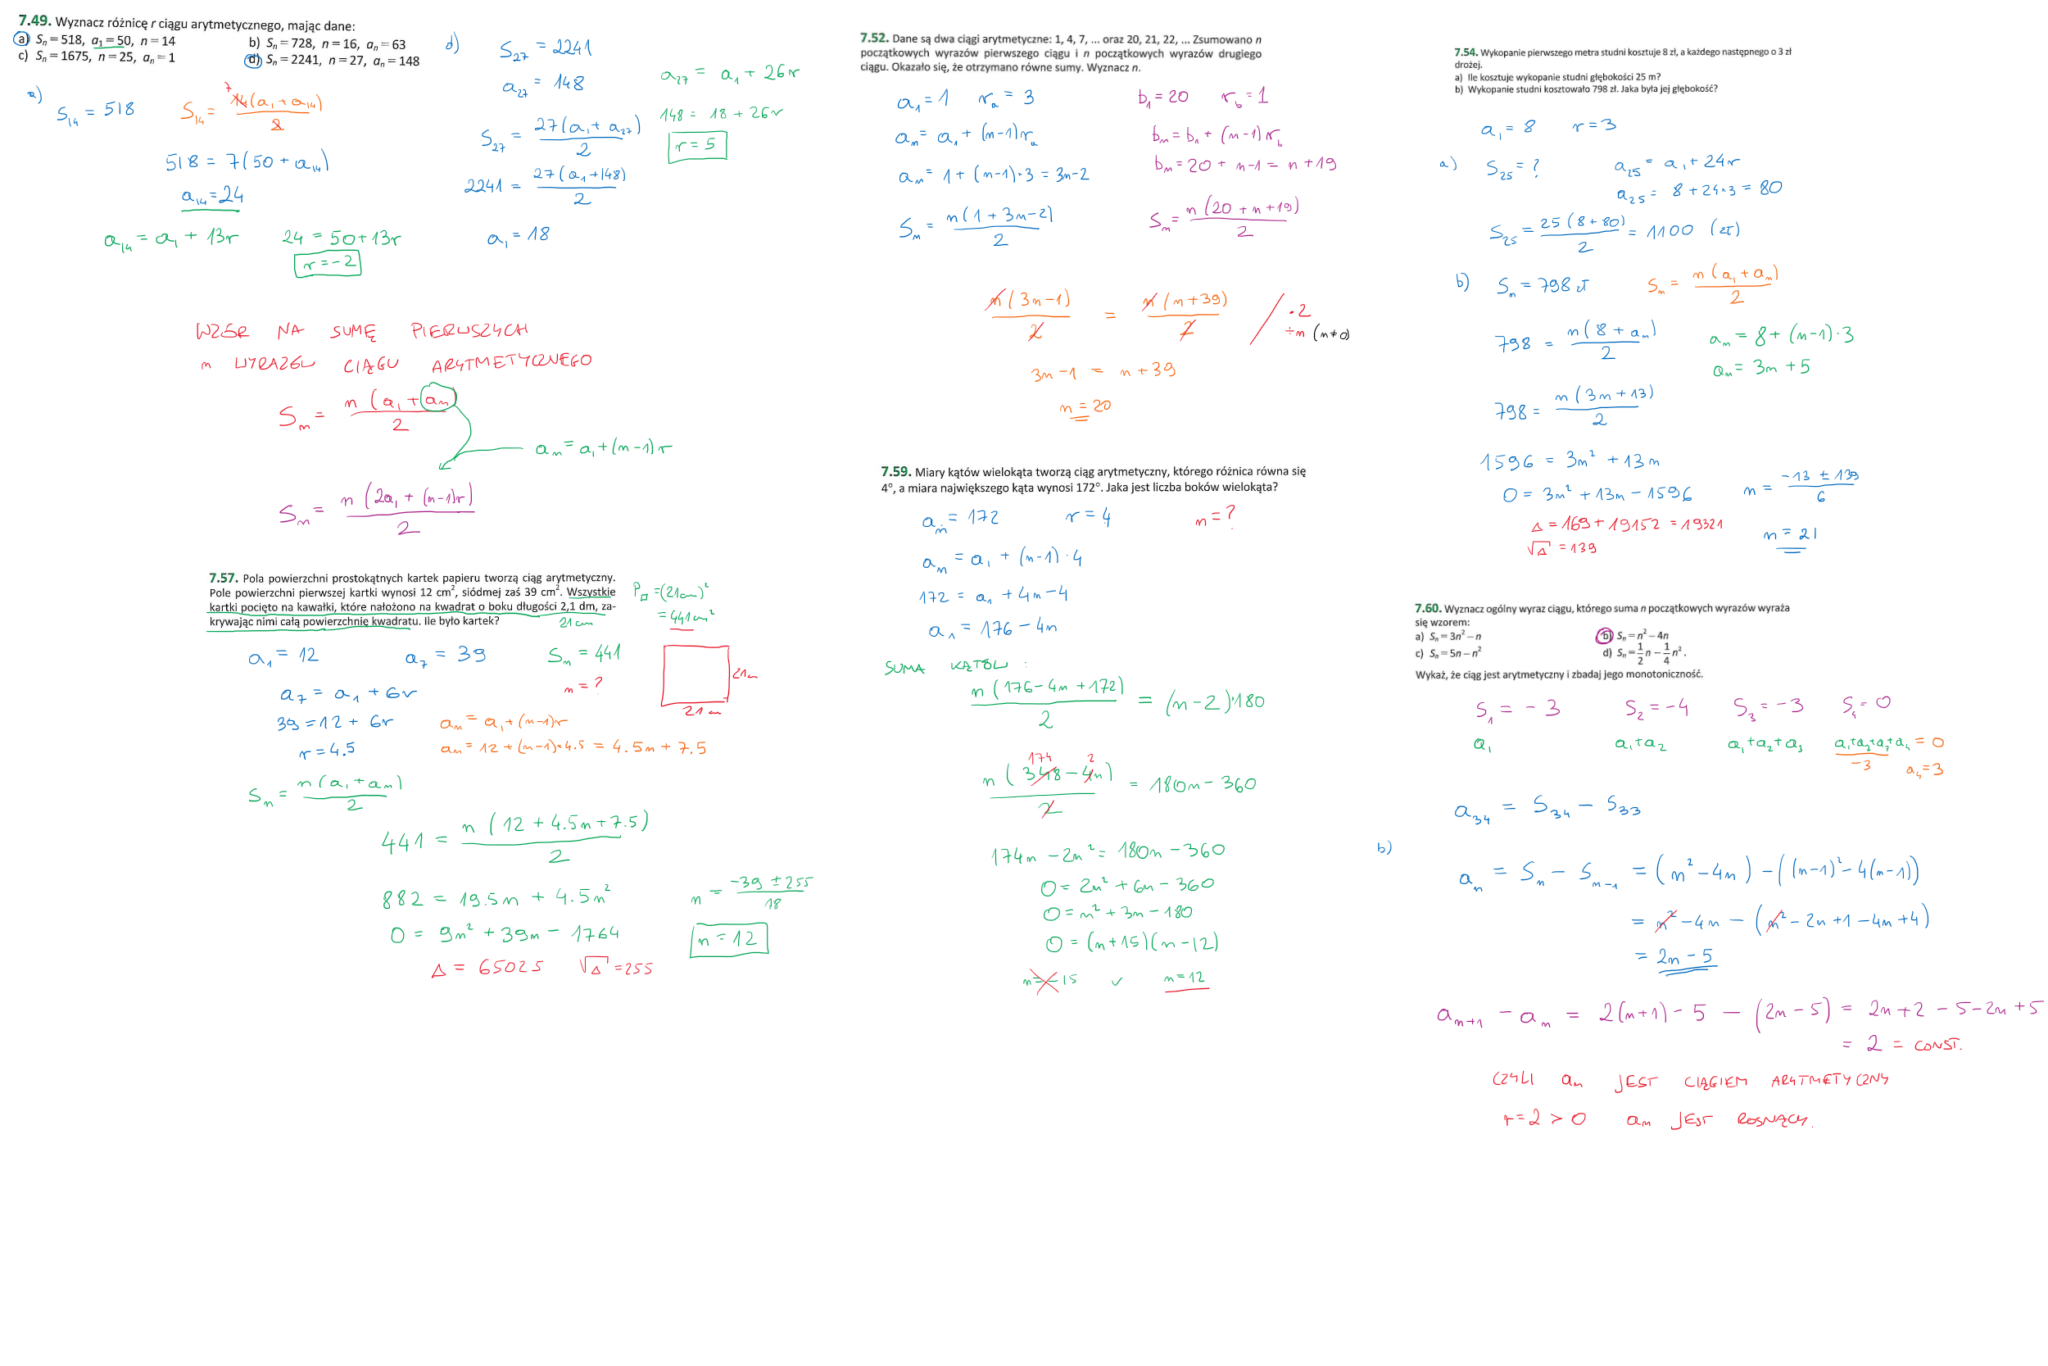 7.49. Wyznacz różnicę r ciągu arytmetycznego, mając dane:
a) Sₙ = 518, a₁ = 50, n = 14
b) Sₙ = 728, n = 16, aₙ = 63
c) Sₙ = 1675, n = 25, aₙ = 1
d) Sₙ = 2241, n = 27, aₙ = 148
a)
S₁₄ = 518
S₁₄ = 14(a₁ + a₁₄) / 2
7
518 = 7(50 + a₁₄)
a₁₄ = 24
a₁₄ = a₁ + 13r
24 = 50 + 13r
r = -2
d)
S₂₇ = 2241
a₂₇ = 148
S₂₇ = 27(a₁ + a₂₇) / 2
2241 = 27(a₁ + 148) / 2
a₁ = 18
a₂₇ = a₁ + 26r
148 = 18 + 26r
r = 5
WZÓR NA SUMĘ PIERWSZYCH
n WYRAZÓW CIĄGU ARYTMETYCZNEGO
Sₙ = n(a₁ + aₙ) / 2
aₙ = a₁ + (n-1)r
Sₙ = n(2a₁ + (n-1)r) / 2
7.57. Pola powierzchni prostokątnych kartek papieru tworzą ciąg arytmetyczny.
Pole powierzchni pierwszej kartki wynosi 12 cm², siódmej zaś 39 cm². Wszystkie
kartki pocięto na kawałki, które nałożono na kwadrat o boku długości 2,1 dm, za-
krywając nimi całą powierzchnię kwadratu. Ile było kartek?
21 cm
P□ = (21cm)²
= 441cm²
a₁ = 12
a₇ = 39
Sₙ = 441
n = ?
21cm
21 cm
a₇ = a₁ + 6r
39 = 12 + 6r
r = 4.5
aₙ = a₁ + (n-1)r
aₙ = 12 + (n-1)·4.5 = 4.5n + 7.5
Sₙ = n(a₁ + aₙ) / 2
441 = n(12 + 4.5n + 7.5) / 2
882 = 19.5n + 4.5n²
0 = 9n² + 39n - 1764
Δ = 65025
√Δ = 255
n = -39 ± 255 / 18
n = 12
7.52. Dane są dwa ciągi arytmetyczne: 1, 4, 7, ... oraz 20, 21, 22, ... Zsumowano n
początkowych wyrazów pierwszego ciągu i n początkowych wyrazów drugiego
ciągu. Okazało się, że otrzymano równe sumy. Wyznacz n.
a₁ = 1
rₐ = 3
aₙ = a₁ + (n-1)rₐ
aₙ = 1 + (n-1)·3 = 3n-2
Sₙ = n(1 + 3n-2) / 2
b₁ = 20
r_b = 1
bₙ = b₁ + (n-1)r_b
bₙ = 20 + n-1 = n + 19
Sₙ = n(20 + n + 19) / 2
n(3n-1) / 2 = n(n+39) / 2
·2
÷n (n≠0)
3n - 1 = n + 39
n = 20
7.59. Miary kątów wielokąta tworzą ciąg arytmetyczny, którego różnica równa się
4°, a miara największego kąta wynosi 172°. Jaka jest liczba boków wielokąta?
aₙ = 172
r = 4
n = ?
aₙ = a₁ + (n-1)·4
172 = a₁ + 4n-4
a₁ = 176 - 4n
SUMA KĄTÓW :
n(176-4n+172) / 2 = (n-2)·180
174 2
n(348-4n) / 2 = 180n - 360
174n - 2n² = 180n - 360
0 = 2n² + 6n - 360
0 = n² + 3n - 180
0 = (n+15)(n-12)
n = -15 ∨ n = 12
7.54. Wykopanie pierwszego metra studni kosztuje 8 zł, a każdego następnego o 3 zł
drożej.
a) Ile kosztuje wykopanie studni głębokości 25 m?
b) Wykopanie studni kosztowało 798 zł. Jaka była jej głębokość?
a₁ = 8
r = 3
a)
S₂₅ = ?
a₂₅ = a₁ + 24r
a₂₅ = 8 + 24·3 = 80
S₂₅ = 25(8 + 80) / 2 = 1100 (zł)
b)
Sₙ = 798 zł
Sₙ = n(a₁ + aₙ) / 2
798 = n(8 + aₙ) / 2
aₙ = 8 + (n-1)·3
aₙ = 3n + 5
798 = n(3n + 13) / 2
1596 = 3n² + 13n
0 = 3n² + 13n - 1596
Δ = 169 + 19152 = 19321
√Δ = 139
n = -13 ± 139 / 6
n = 21
7.60. Wyznacz ogólny wyraz ciągu, którego suma n początkowych wyrazów wyraża
się wzorem:
a) Sₙ = 3n² - n
b) Sₙ = n² - 4n
c) Sₙ = 5n - n²
d) Sₙ = 1/2 n - 1/4 n².
Wykaż, że ciąg jest arytmetyczny i zbadaj jego monotoniczność.
S₁ = -3
S₂ = -4
S₃ = -3
S₄ = 0
a₁
a₁+a₂
a₁+a₂+a₃
a₁+a₂+a₃+a₄ = 0
-3
a₄ = 3
a₃₄ = S₃₄ - S₃₃
b)
aₙ = Sₙ - Sₙ₋₁ = (n² - 4n) - ((n-1)² - 4(n-1))
= n² - 4n - (n² - 2n + 1 - 4n + 4)
= 2n - 5
aₙ₊₁ - aₙ = 2(n+1) - 5 - (2n-5) = 2n + 2 - 5 - 2n + 5
= 2 = CONST.
CZYLI aₙ JEST CIĄGIEM ARYTMETYCZNY
r = 2 > 0 aₙ JEST ROSNĄCY.